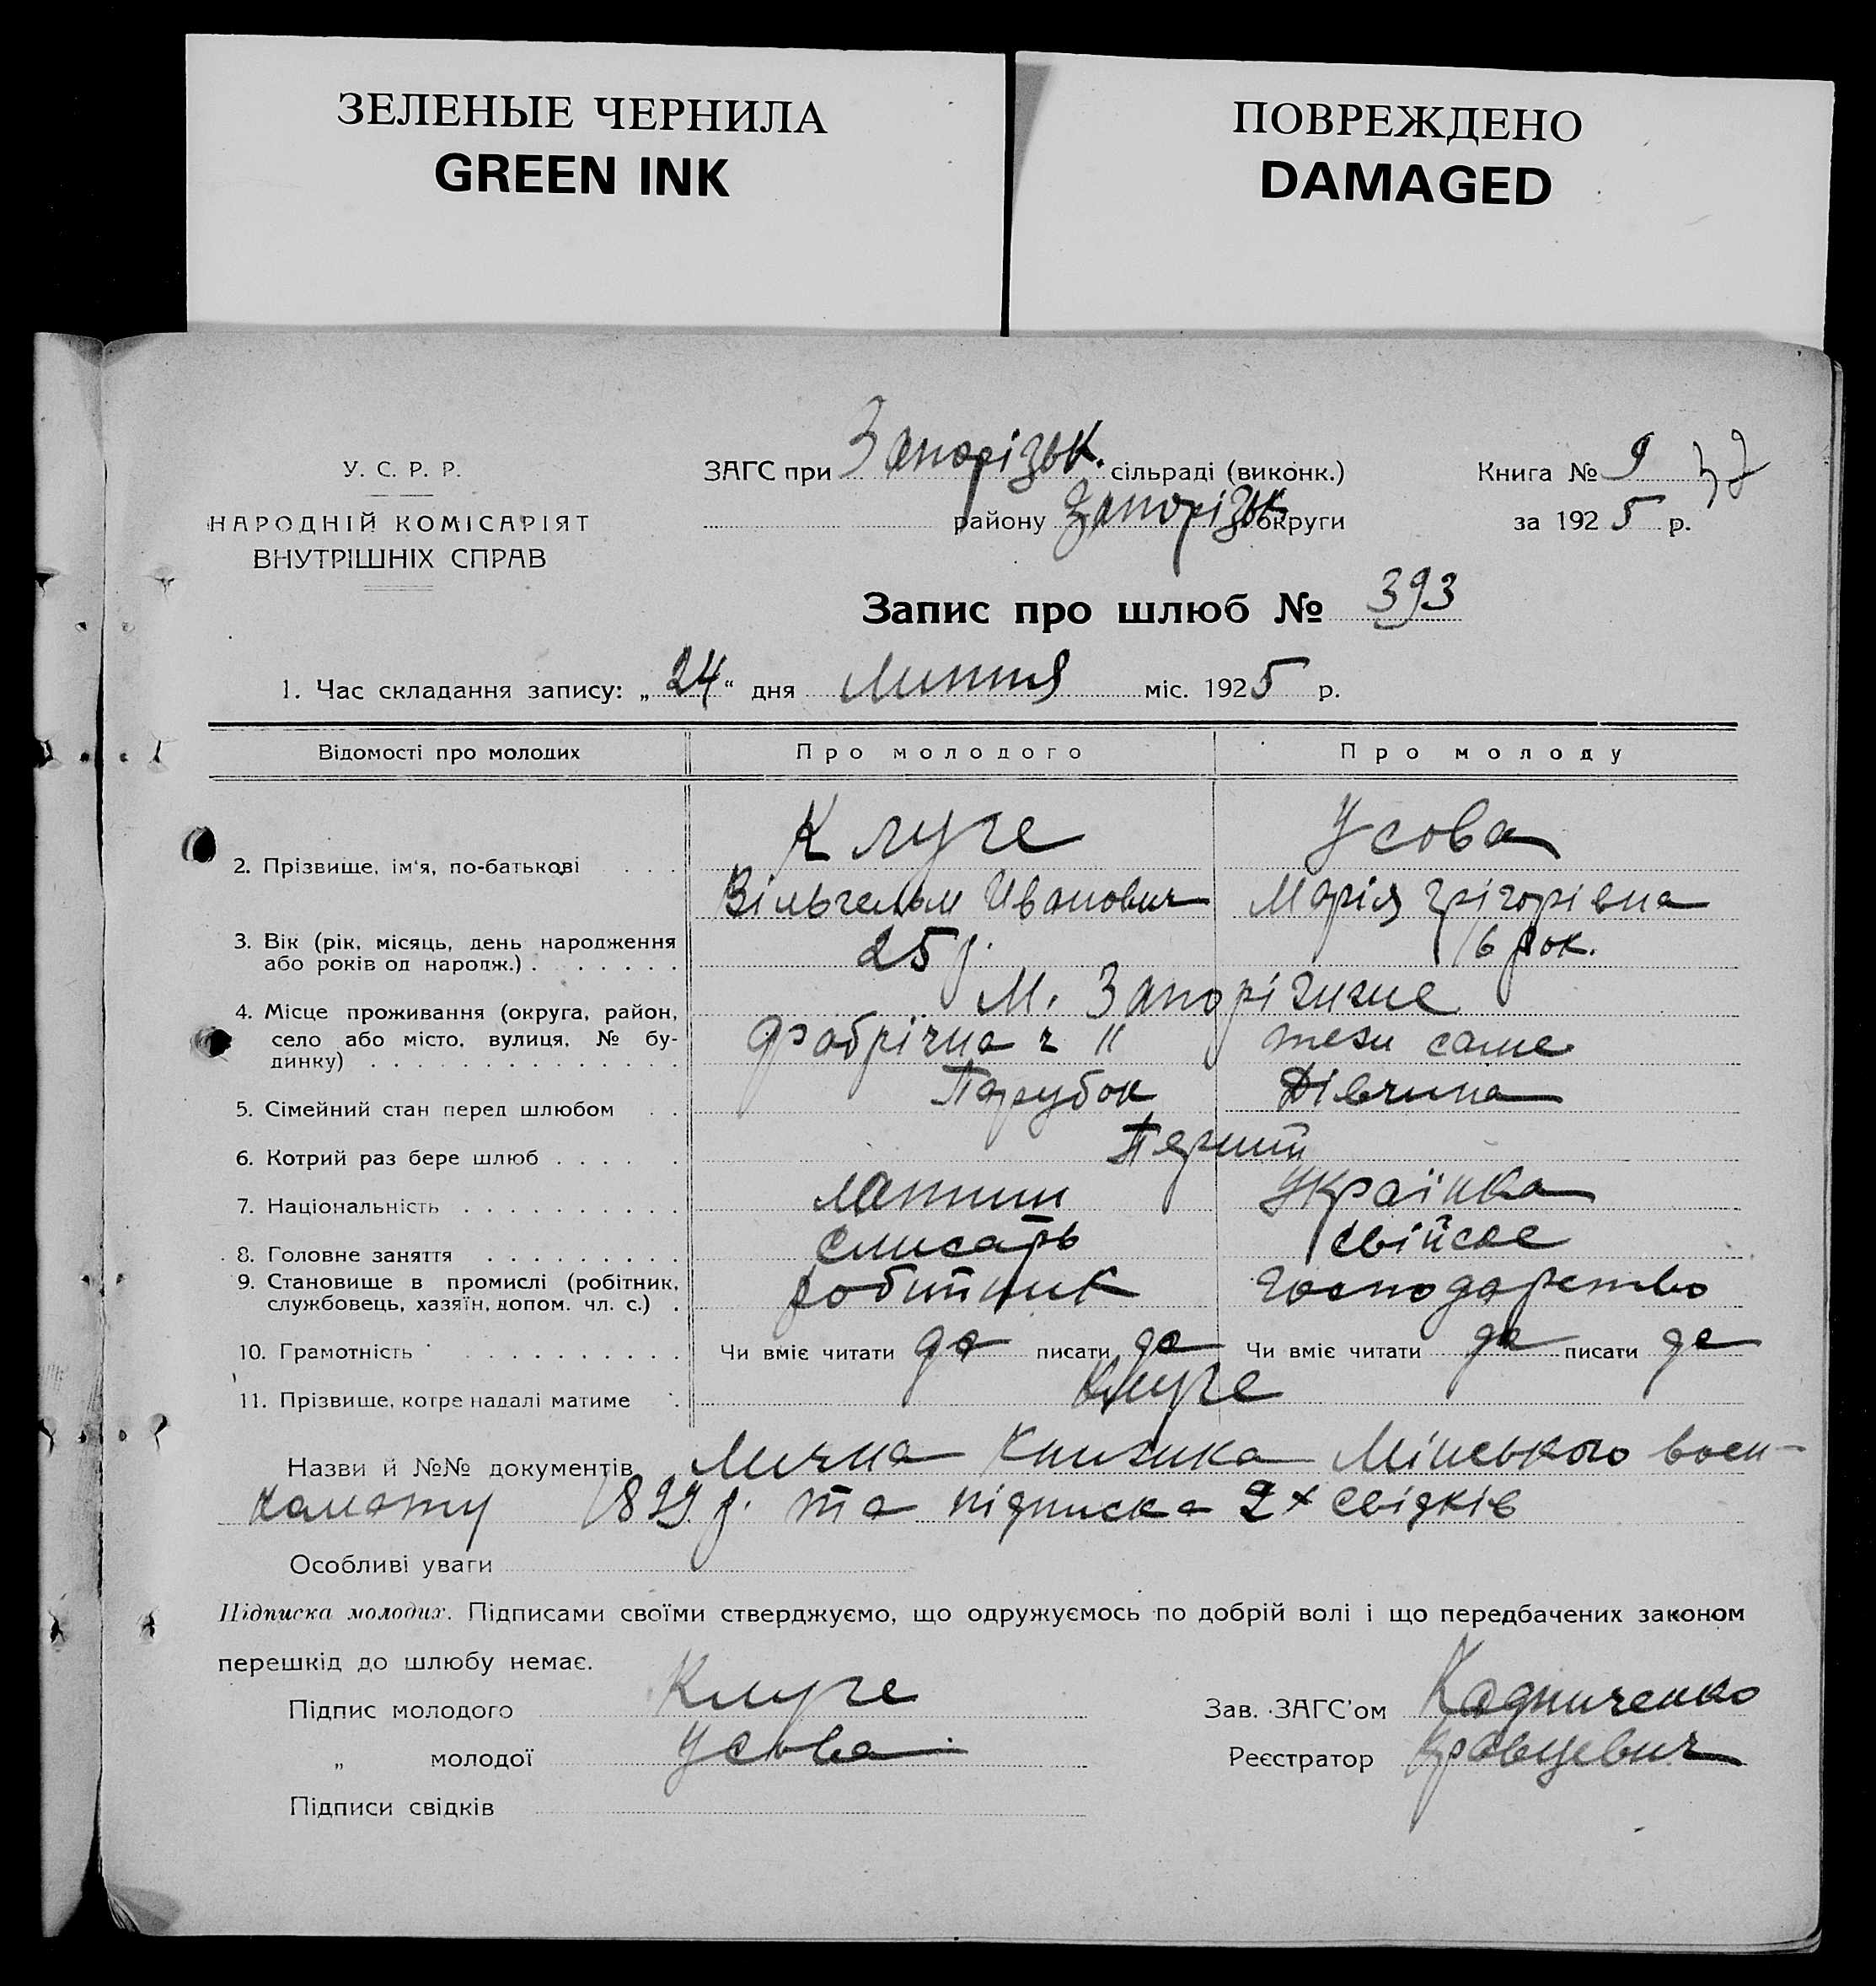 ЗЕЛЕНЫЕ ЧЕРНИЛА
GREEN INK
ПОВРЕЖДЕНО
DAMAGED
У. С. Р. Р.
НАРОДНІЙ КОМІСАРІЯТ
ВНУТРІШНІХ СПРАВ
ЗАГС при Запорізьк. сільраді (виконк.)
району Запорізьк округи
Книга № 9
за 1925 р.
Запис про шлюб № 393
1. Час складання запису: „24“ дня Липня міс. 1925 р.
Відомості про молодих Про молодого Про молоду
2. Прізвище, ім'я, по-батькові . . . Клуге Усова
Вільгельм Иванович Марія Грігорівна
3. Вік (рік, місяць, день народження або років од народж.) . . . . . . 25 р. 16 рок.
4. Місце проживання (округа, район, село або місто, вулиця, № будинку) . . . . . . . . . . . . . . м. Запоріжже
Фабрічна ч 11 теж саме
5. Сімейний стан перед шлюбом . . Парубок Дівчина
6. Котрий раз бере шлюб . . . . . Перший
7. Національність . . . . . . . . . . латиш Українка
8. Головне заняття . . . . . . . . . слисарь свійске
9. Становище в промислі (робітник, службовець, хазяїн, допом. чл. с.) . робітник господарство
10. Грамотність . . . . . . . . . . . Чи вміє читати да писати да Чи вміє читати да писати да
11. Прізвище, котре надалі матиме . Клуге
Назви й №№ документів Лична книжка Мінського воен-
комату 1899 р. та підписка 2х свідків
Особливі уваги
Підписка молодих. Підписами своїми стверджуємо, що одружуємось по добрій волі і що передбачених законом
перешкід до шлюбу немає.
Підпис молодого Клуге
„ молодої Усова
Підписи свідків
Зав. ЗАГС'ом
Реєстратор Кравцевич